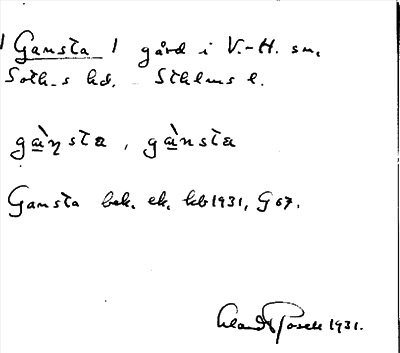 Gamsta gård i V.-H. sn,
Soth-s hd. Sthlms l.
gàŋsta, gànsta
Gamsta bek. ek. kb 1931, G 67.
1931.